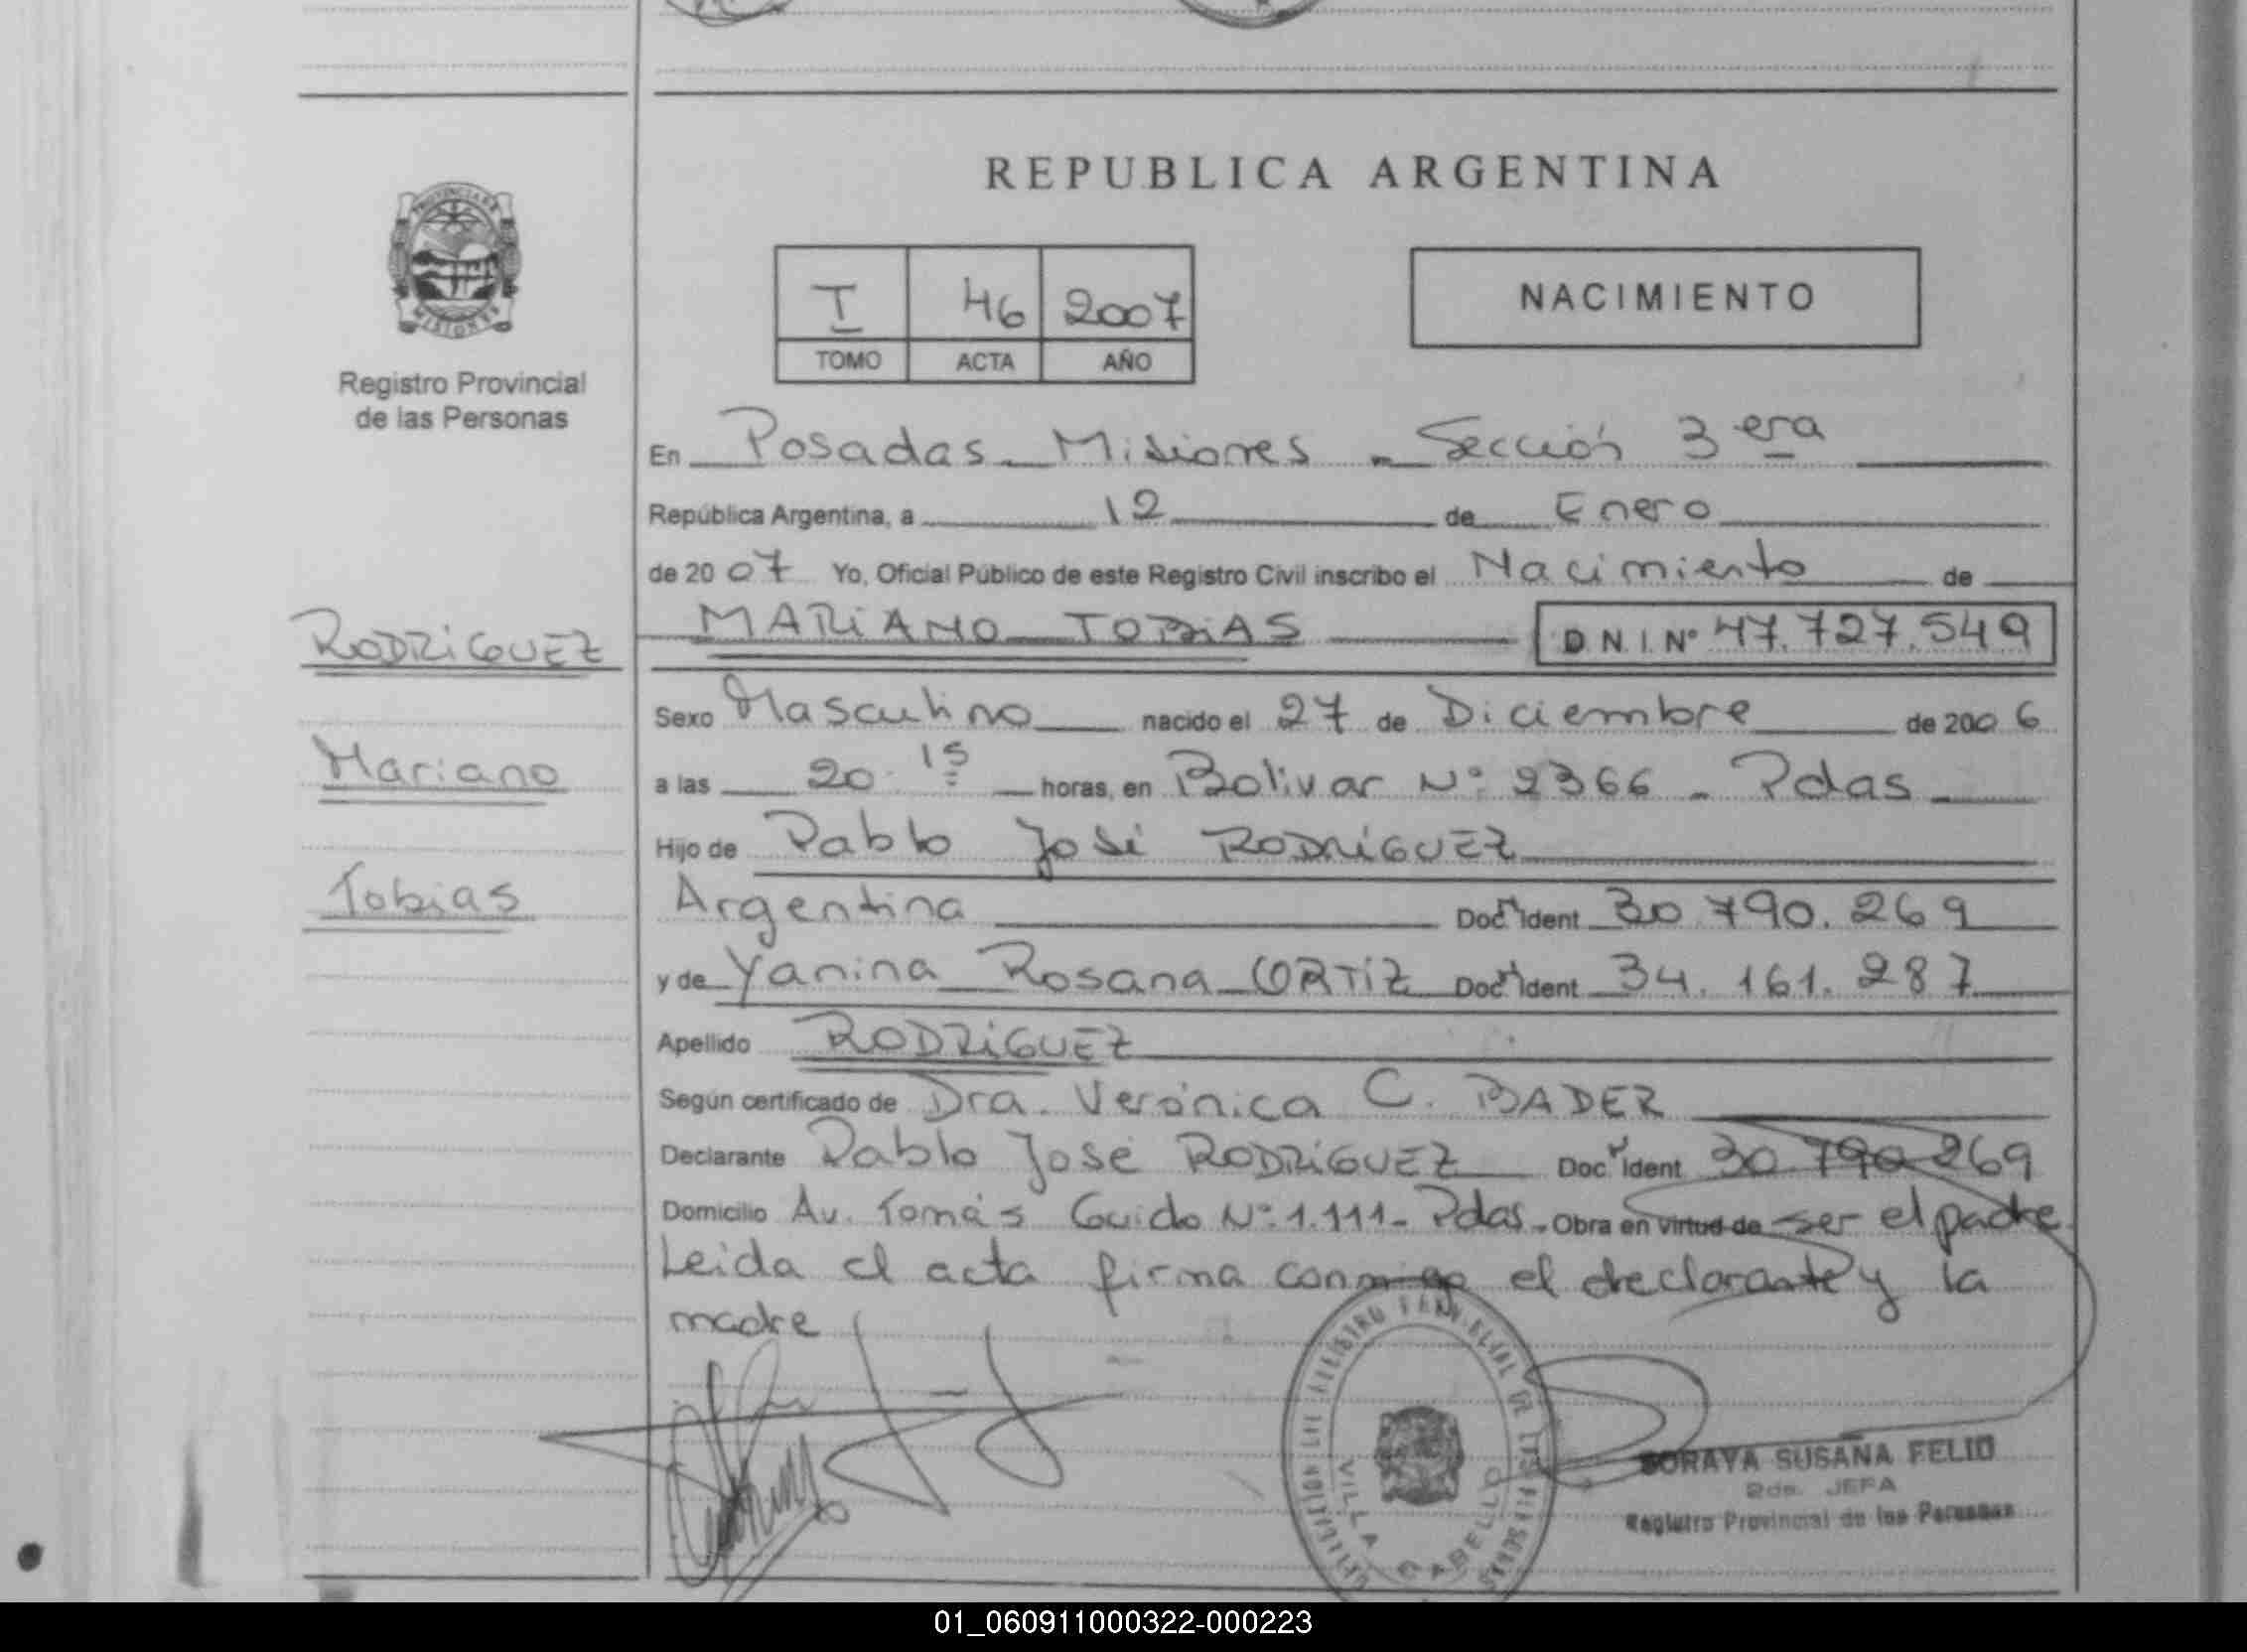 REPUBLICA ARGENTINA
PROVINCIA DE
MISIONES
Registro Provincial
de las Personas
I 46 2007
TOMO ACTA AÑO
NACIMIENTO
En Posadas - Misiones - Sección 3 era
República Argentina, a 12 de Enero
de 2007 Yo, Oficial Público de este Registro Civil inscribo el Nacimiento de
MARIANO TOBIAS D.N.I. Nº 47.727.549
RODRIGUEZ
Mariano
Tobias
Sexo Masculino nacido el 27 de Diciembre de 2006
a las 20 15 horas, en Bolivar Nº 2366 - Pdas -
Hijo de Pablo José RODRIGUEZ
Argentina Doc. Ident 30.790.269
y de Yanina Rosana ORTIZ Doc. Ident 34.161.287
Apellido RODRIGUEZ
Según certificado de Dra. Verónica C. BADER
Declarante Pablo José RODRIGUEZ Doc. Ident 30.790.269
Domicilio Av. Tomás Guido Nº 1.111 - Pdas - Obra en virtud de ser el padre
Leida el acta firma conmigo el declarante y la
madre
VILLA CABELLO
SORAYA SUSANA FELIO
2da. JEFA
Registro Provincial de las Personas
01_060911000322-000223